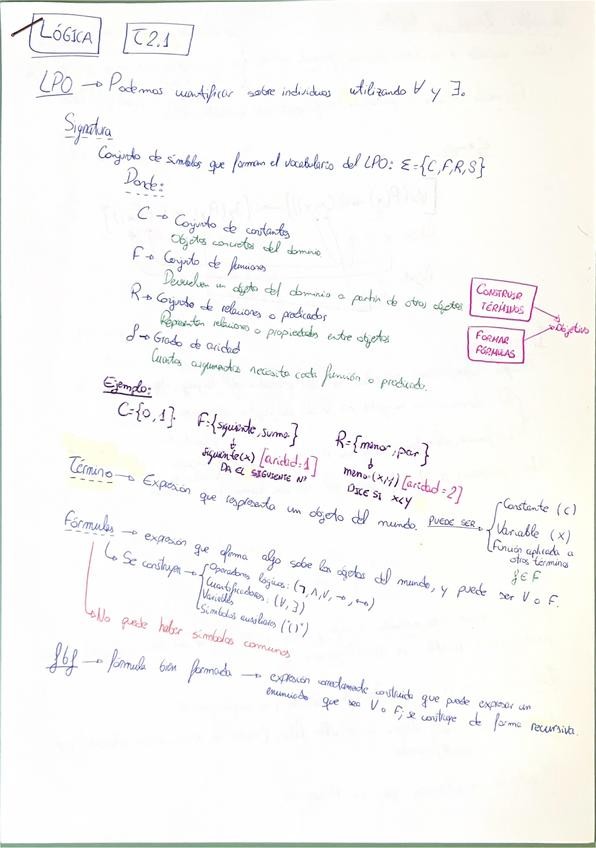 LÓGICA T2.1
LPO → Podemos cuantificar sobre individuos utilizando ∀ y ∃.
Signatura
Conjunto de símbolos que forman el vocabulario del LPO: Σ={C,F,R,S}
Donde:
C → Conjunto de constantes
Objetos concretos del dominio
F → Conjunto de funciones
Devuelven un objeto del dominio a partir de otros objetos
R → Conjunto de relaciones o predicados
Representan relaciones o propiedades entre objetos
δ → Grado de aridad
Cuantos argumentos necesita cada función o predicado.
CONSTRUIR
TÉRMINOS
FORMAR
FÓRMULAS
Objetivo
Ejemplo:
C={0,1} F={siguiente, suma} R={menor, par}
siguiente(x) [aridad=1] menor(x,y) [aridad=2]
DA EL SIGUIENTE Nº DICE SI X<Y
Término → Expresión que respresenta un objeto del mundo. PUEDE SER →
Constante (c)
Variable (x)
Función aplicada a
otros términos
f∈F
Fórmulas → expresión que afirma algo sobre los objetos del mundo, y puede ser V o F.
↳ Se construyen → Operadores lógicos: (¬,∧,∨,→,↔)
Cuantificadores: (∀,∃)
Variables
Símbolos auxiliares ("()")
No puede haber símbolos comunes
fbf → fórmula bien formada → expresión correctamente construida que puede expresar un
enunciado que sea V o F; se construye de forma recursiva.